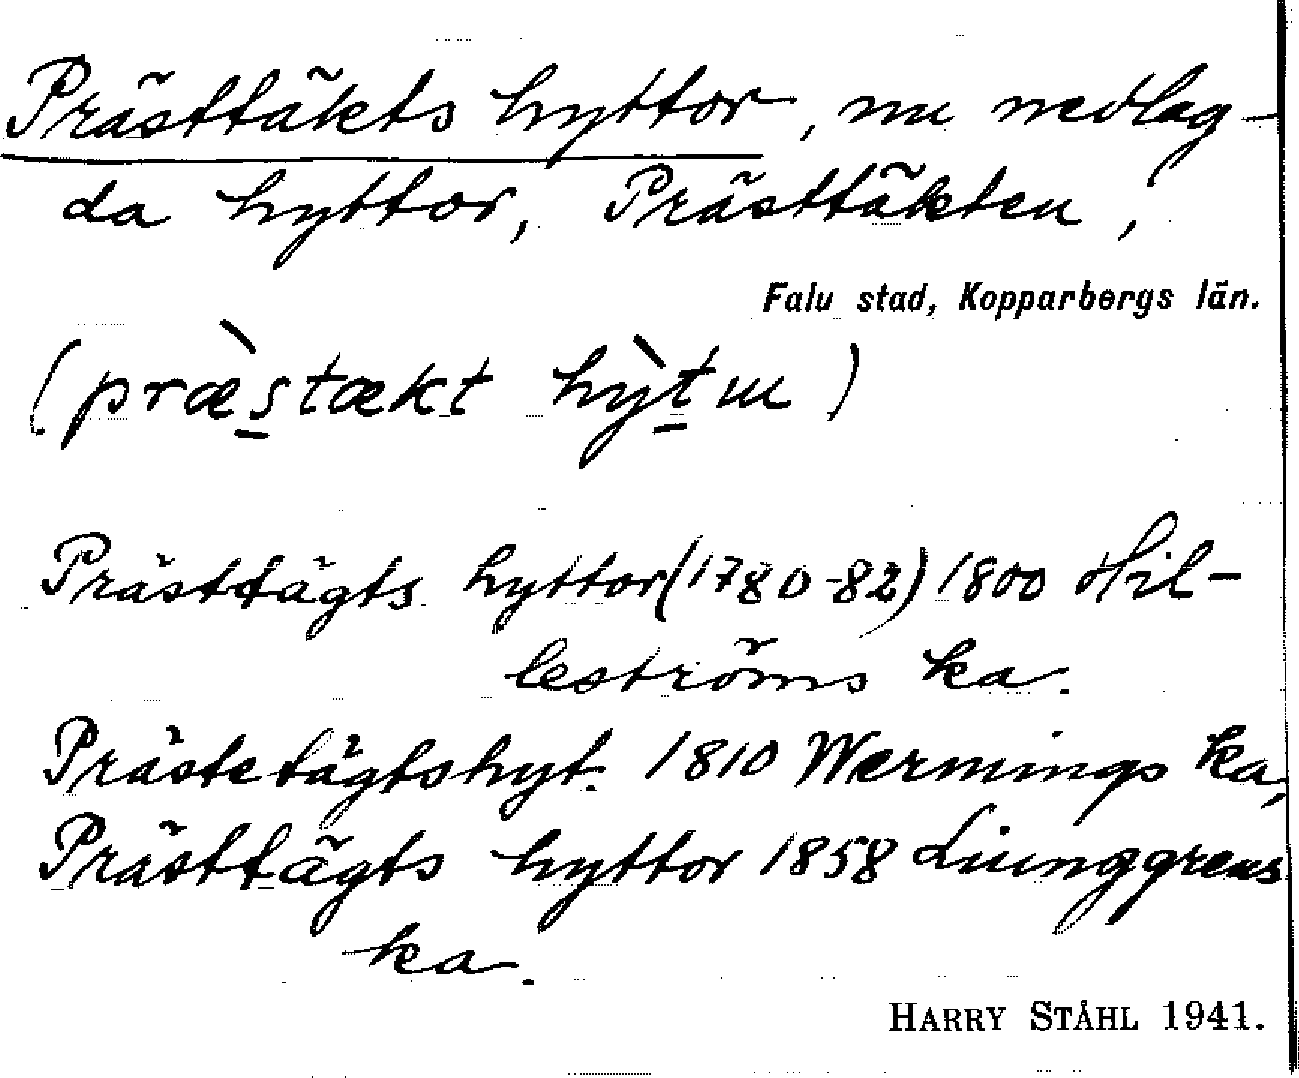 Prästtäkts hyttor, nu nedlag-
da hyttor, Prästtäkten,
Falu stad, Kopparbergs län.
(præ̀s̲tækt hỳt̲ɯ)
Prästtägts hyttor (1780-82) 1800 Hil-
leströms ka.
Prästetägtshyt. 1810 Wermings ka,
Prästtägts hyttor 1858 Liunggrens
ka.
HARRY STÅHL 1941.